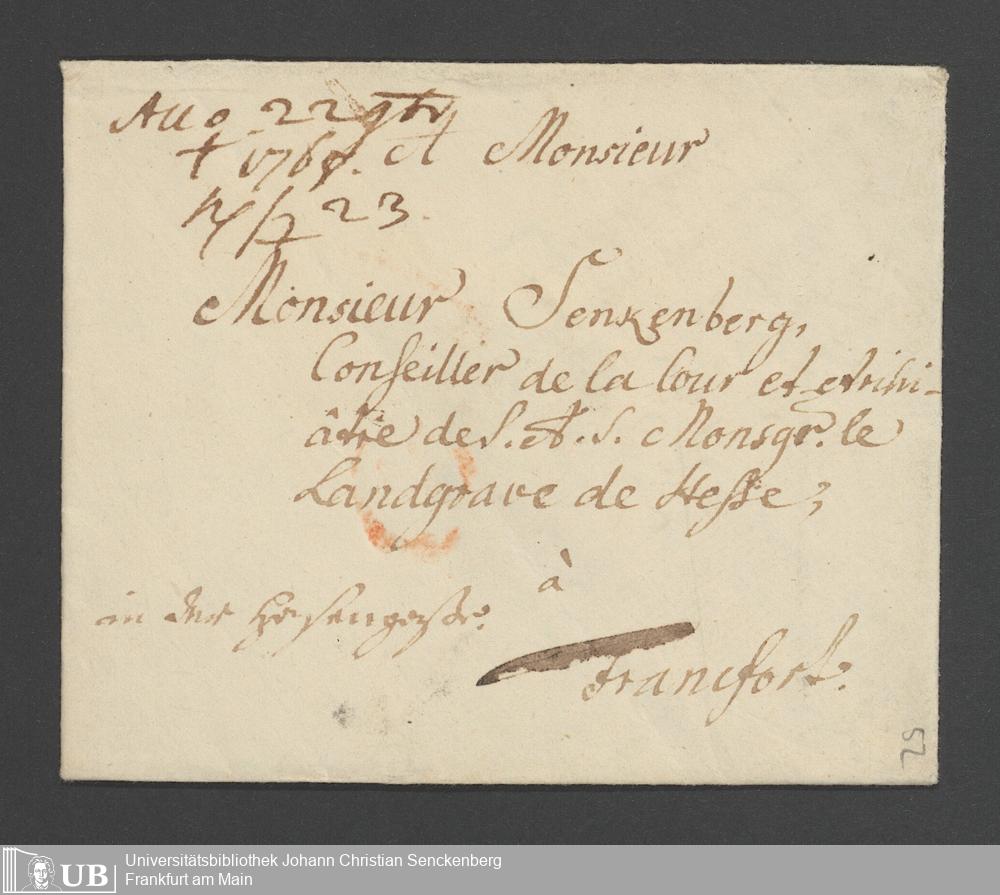 22 9br
1768. A Monsieur
23.
Monsieur Senkenberg,
Conseiller de la Cour et Archi-
âtre de S. A. S. Monsgr. le
Landgrave de Hesse,
à
in der Hasengasse.
Francfort.
25
UB Universitätsbibliothek Johann Christian Senckenberg
Frankfurt am Main